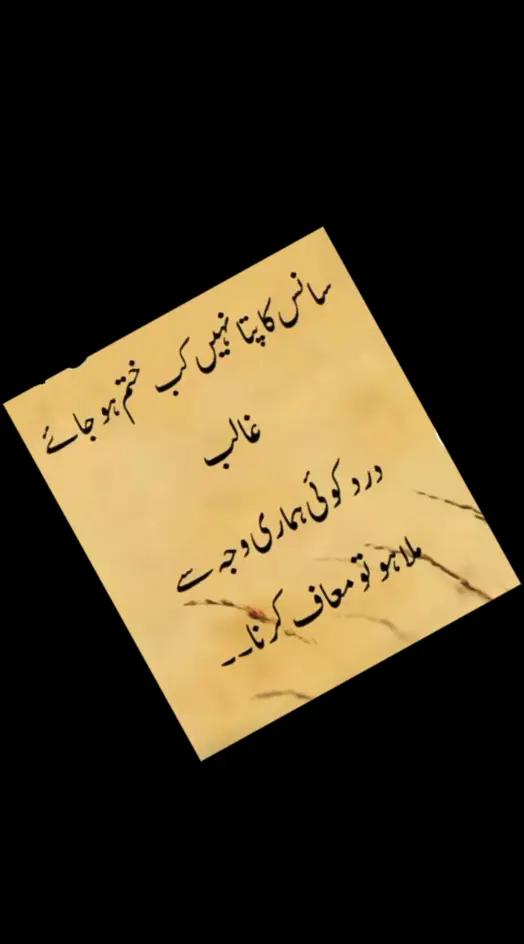 سانس کا پتا نہیں کب ختم ہو جائے
غالب
درد کوئی ہماری وجہ سے
ملا ہو تو معاف کرنا۔۔